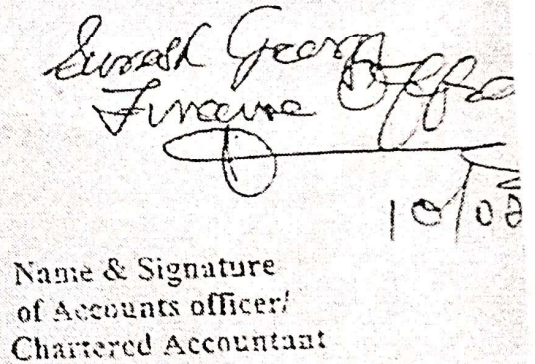 Suresh Georg
Finance Office
10/08
Name & Signature
of Accounts officer/
Chartered Accountant